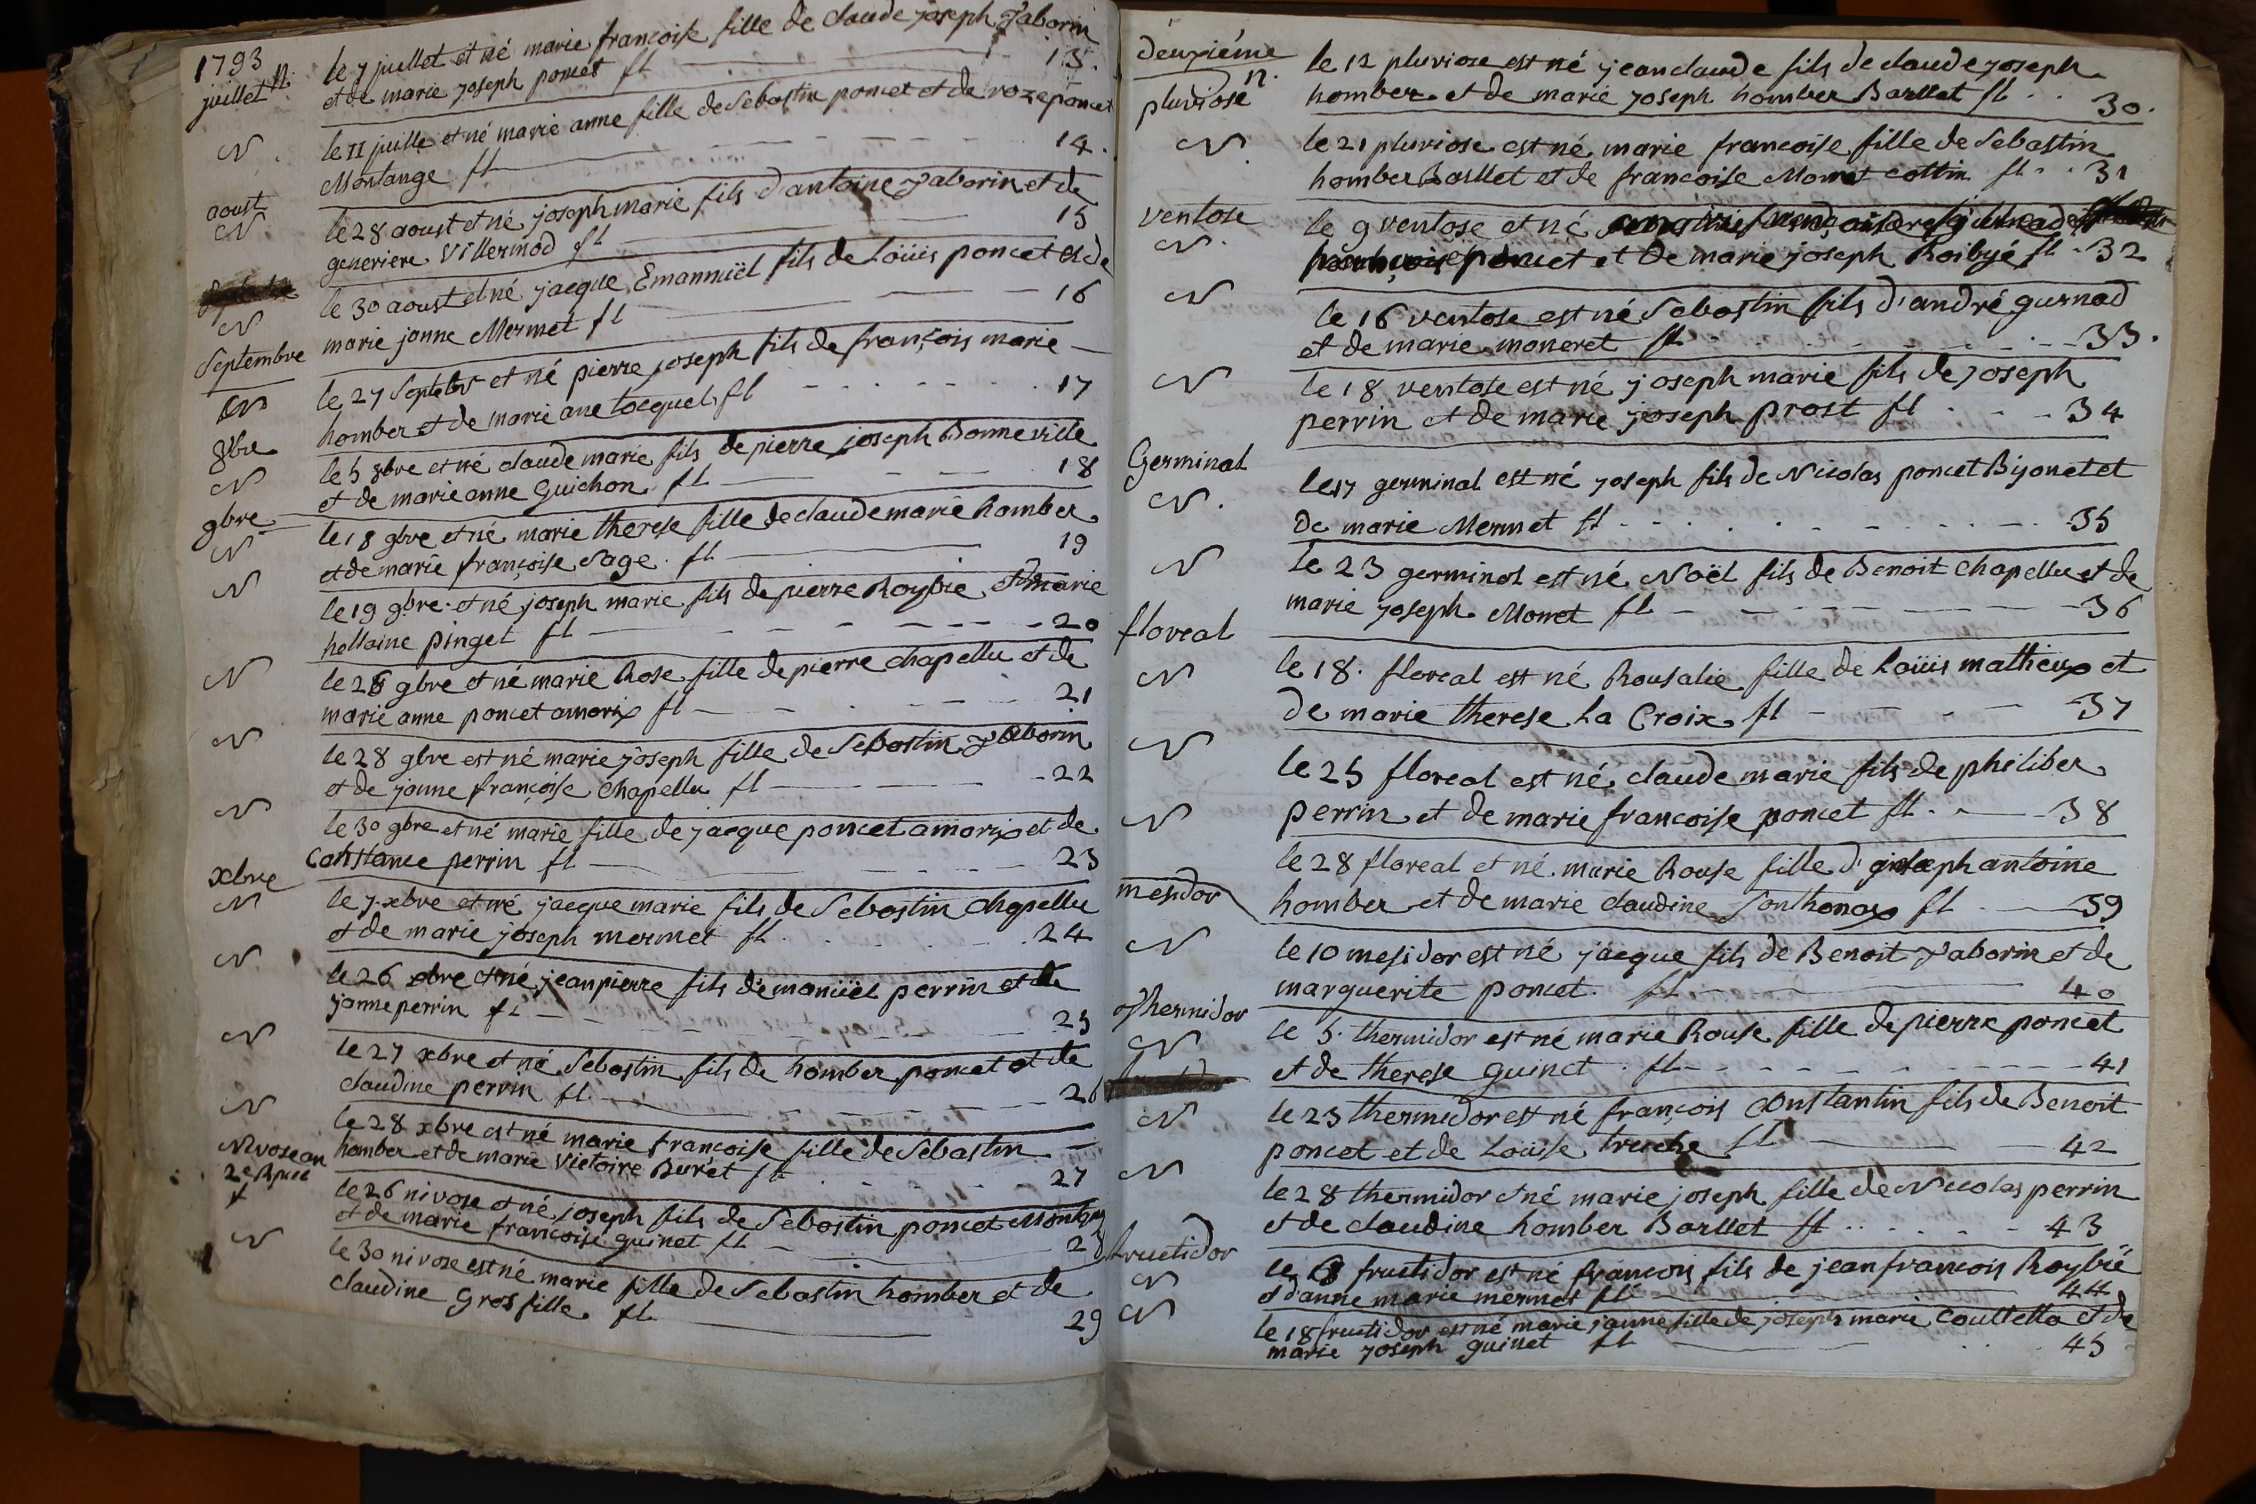 1793
juillet N. le 7 juillet et né marie françoise fille de claude joseph Jaborin
et de marie joseph poncet fl 13.
N. le 11 juille et né marie anne fille de Sebastin poncet et de roze poncet
Montange fl 14.
aoust
N. le 28 aoust et né joseph marie fils d'antoine Jaborin et de
generiere Villermod fl 15
N le 30 aoust et né jacque Emannuël fils de Loüis poncet et de
marie janne Mermet fl 16
Septembre
N le 27 Septebr et né pierre joseph fils de françois marie
homber et de marie ane tocquel fl 17
8bre
N le 5 8bre et né claude marie fils de pierre joseph Bonneville
et de marie anne Guichon fl 18
9bre
N le 18 9bre et né marie therese fille de claude marie homber
et de marie françoise Sage fl 19
N le 19 9bre et né joseph marie fils de pierre Roybie et marie
hellaine pinget fl 20
N le 28 9bre et né marie Rose fille de pierre chapellu et de
marie anne poncet amorix fl 21
N le 28 9bre est né marie joseph fille de Sebostin Jaborin
et de janne françoise Chapellu fl 22
N le 30 9bre et né marie fille de jacque poncet amorix et de
Constance perrin fl 23
xbre
N le 7 xbre et né jacque marie fils de Sebostin chapellu
et de marie joseph mermet fl 24
N. le 26 xbre et né jean pierre fils d'emanüel perrin et de
janne perrin fl 25
N le 27 xbre et né Sebostin fils de homber poncet et de
claudine perrin fl 26
N le 28 xbre est né marie françoise fille de Sebastin
homber et de marie Victoire Buret fl 27
Nivose an
2e Rpue
le 26 nivose et né joseph fils de Sebostin poncet Montange
et de marie françoise guinet fl 28
N le 30 nivose est né marie fille de Sebastin homber et de
claudine Gros fille fl 29
deuxiéme
pluviose N. le 12 pluviose est né jean claude fils de claude joseph
homber et de marie joseph homber Barllet fl 30.
N. le 21 pluviose est né marie francoise fille de Sebastin
homber Barllet et de francoise Monnet cottin fl 31
ventose
N. le 9 ventose et né
poncet et de marie joseph Roibyé fl 32
N le 16 ventose est né Sebostin fils d'andré gurnad
et de marie moneret fl 33.
N le 18 ventose est né joseph marie fils de joseph
perrin et de marie joseph prost fl 34
Germinal
N. le 17 germinal est né joseph fils de Nicolas poncet Bijonet et
de marie Mermet fl 35
N le 23 germinal est né Noël fils de Benoit chapellu et de
marie joseph Monet fl 36
floreal
N le 18. floreal est né Rousalie fille de Loüis mathieux et
de marie therese La Croix fl 37
N le 25 floreal est né claude marie fils de philiber
perrin et de marie francoise poncet fl 38
N le 28 floreal et né marie Rouse fille d' joseph antoine
homber et de marie claudine Sonthonax fl 39
mesidor
N le 10 mesidor est né jacque fils de Benoit Jaborin et de
marguerite poncet fl 40
Thermidor
N le 5 thermidor est né marie Rouse fille de pierre poncet
et de therese guinet fl 41
N le 23 thermidor est né françois Constantin fils de Benoit
poncet et de Loüise truche fl 42
N le 28 thermidor et né marie joseph fille de Nicolas perrin
et de claudine homber Barllet fl 43
fructidor
N le 8 fructidor est né francois fils de jean francois Roybié
et d'anne marie mermet fl 44
N le 18 fructidor est né marie janne fille de joseph marie Couttetta et de
marie joseph guinet fl 45